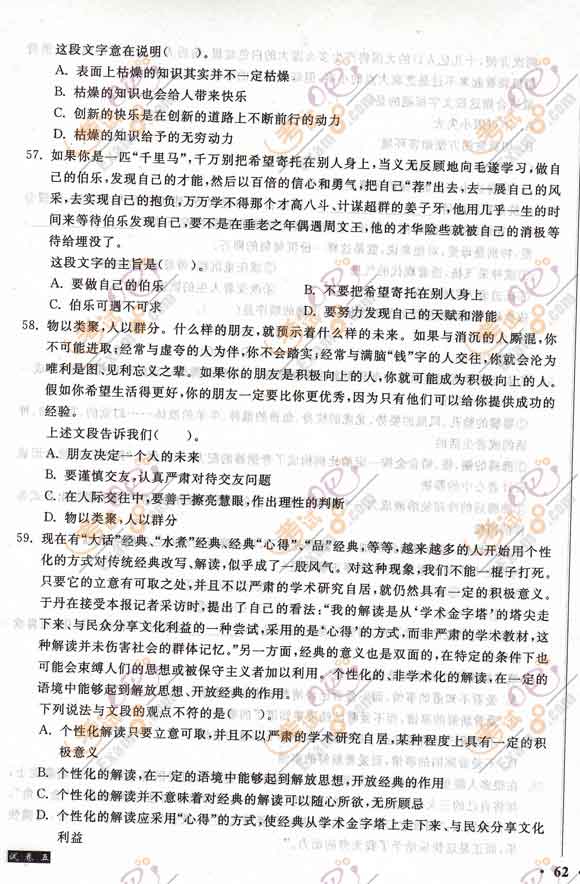 这段文字意在说明(　　)。
A. 表面上枯燥的知识其实并不一定枯燥
B. 枯燥的知识也会给人带来快乐
C. 创新的快乐是在创新的道路上不断前行的动力
D. 枯燥的知识给予的无穷动力
57. 如果你是一匹“千里马”,千万别把希望寄托在别人身上,当义无反顾地向毛遂学习,做自
己的伯乐,发现自己的才能,然后以百倍的信心和勇气,把自己“荐”出去,去一展自己的风
采,去实现自己的抱负,万万学不得那个才高八斗、计谋超群的姜子牙,他用几乎一生的时
间来等待伯乐发现自己,要不是在垂老之年偶遇周文王,他的才华险些就被自己的消极等
待给埋没了。
这段文字的主旨是(　　)。
A. 要做自己的伯乐　　B. 不要把希望寄托在别人身上
C. 伯乐可遇不可求　　D. 要努力发现自己的天赋和潜能
58. 物以类聚,人以群分。什么样的朋友,就预示着什么样的未来。如果与消沉的人厮混,你
不可能进取;经常与虚夸的人为伴,你不会踏实;经常与满脑“钱”字的人交往,你就会沦为
唯利是图、见利忘义之辈。如果你的朋友是积极向上的人,你就可能成为积极向上的人。
假如你希望生活得更好,你的朋友一定要比你更优秀,因为只有他们可以给你提供成功的
经验。
上述文段告诉我们(　　)。
A. 朋友决定一个人的未来
B. 要谨慎交友,认真严肃对待交友问题
C. 在人际交往中,要善于擦亮慧眼,作出理性的判断
D. 物以类聚,人以群分
59. 现在有“大话”经典、“水煮”经典、经典“心得”、“品”经典,等等,越来越多的人开始用个性
化的方式对传统经典改写、解读,似乎成了一般风气。对这种现象,我们不能一棍子打死。
只要它的立意有可取之处,并且不以严肃的学术研究自居,就仍然具有一定的积极意义。
于丹在接受本报记者采访时,提出了自己的看法:“我的解读是从‘学术金字塔’的塔尖走
下来、与民众分享文化利益的一种尝试,采用的是‘心得’的方式,而非严肃的学术教材,这
种解读并未伤害社会的群体记忆。”另一方面,经典的意义也是双面的,在特定的条件下也
可能会束缚人们的思想或被保守主义者加以利用。个性化的、非学术化的解读,在一定的
语境中能够起到解放思想、开放经典的作用。
下列说法与文段的观点不符的是(　　)。
A. 个性化解读只要立意可取,并且不以严肃的学术研究自居,某种程度上具有一定的积
极意义
B. 个性化的解读,在一定的语境中能够起到解放思想、开放经典的作用
C. 个性化的解读并不意味对经典的解读可以随心所欲,无所顾忌
D. 个性化的解读应采用“心得”的方式,使经典从学术金字塔上走下来、与民众分享文化
利益
试卷五
• 62 •